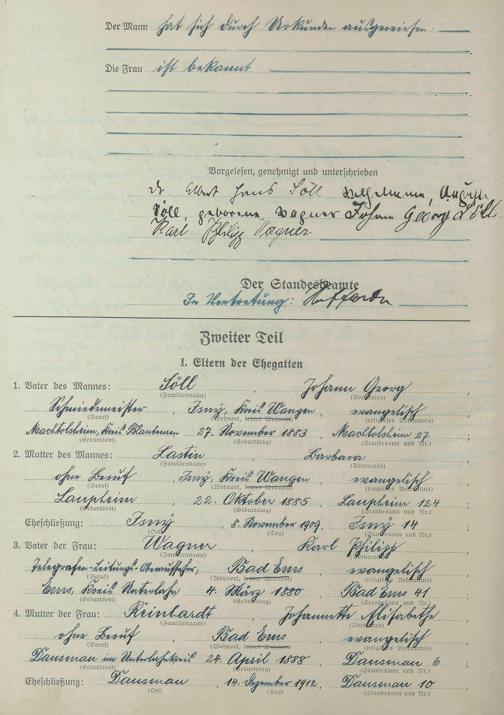 Der Mann hat sich durch Urkunden ausgewiesen.
Die Frau ist bekannt
Vorgelesen, genehmigt und unterschrieben
Dr. Albert Hans Söll Wilhelmine, Auguste
Söll, geborene Wagner Johann Georg Söll.
Karl Philipp Wagner
Der Standesbeamte
In Vertretung:
Zweiter Teil
I. Eltern der Ehegatten
1. Vater des Mannes: Söll, Johann Georg
(Familienname) (Vornamen)
Schmiedemeister, Isny, Kreis Wangen, evangelisch
(Beruf) (Wohnort, letzter Wohnort) (religiöses Bekenntnis)
Machtolsheim, Kreis Blaubeuren 27. November 1883, Machtolsheim 27
(Geburtsort) (Geburtstag) (Standesamt und Nr.)
2. Mutter des Mannes: Lastin Barbara
(Familienname) (Vornamen)
ohne Beruf, Isny, Kreis Wangen, evangelisch
(Beruf) (Wohnort, letzter Wohnort) (religiöses Bekenntnis)
Laupheim 22. Oktober 1885, Laupheim 124
(Geburtsort) (Geburtstag) (Standesamt und Nr.)
Eheschließung: Isny 8. November 1909, Isny 14
(Ort) (Tag) (Standesamt und Nr.)
3. Vater der Frau: Wagner Karl Philipp
(Familienname) (Vornamen)
Telegrafen-Leitungs-Oberaufseher, Bad Ems, evangelisch
(Beruf) (Wohnort, letzter Wohnort) (religiöses Bekenntnis)
Ems, Kreis Unterlahn 4. März 1880 Bad Ems 41
(Geburtsort) (Geburtstag) (Standesamt und Nr.)
4. Mutter der Frau: Reinhardt Johannette Elisabethe
(Familienname) (Vornamen)
ohne Beruf, Bad Ems evangelisch
(Beruf) (Wohnort, letzter Wohnort) (religiöses Bekenntnis)
Dausenau im Unterlahnkreis 24. April 1888, Dausenau 6
(Geburtsort) (Geburtstag) (Standesamt und Nr.)
Eheschließung: Dausenau, 14. Dezember 1912, Dausenau 10
(Ort) (Tag) (Standesamt und Nr.)